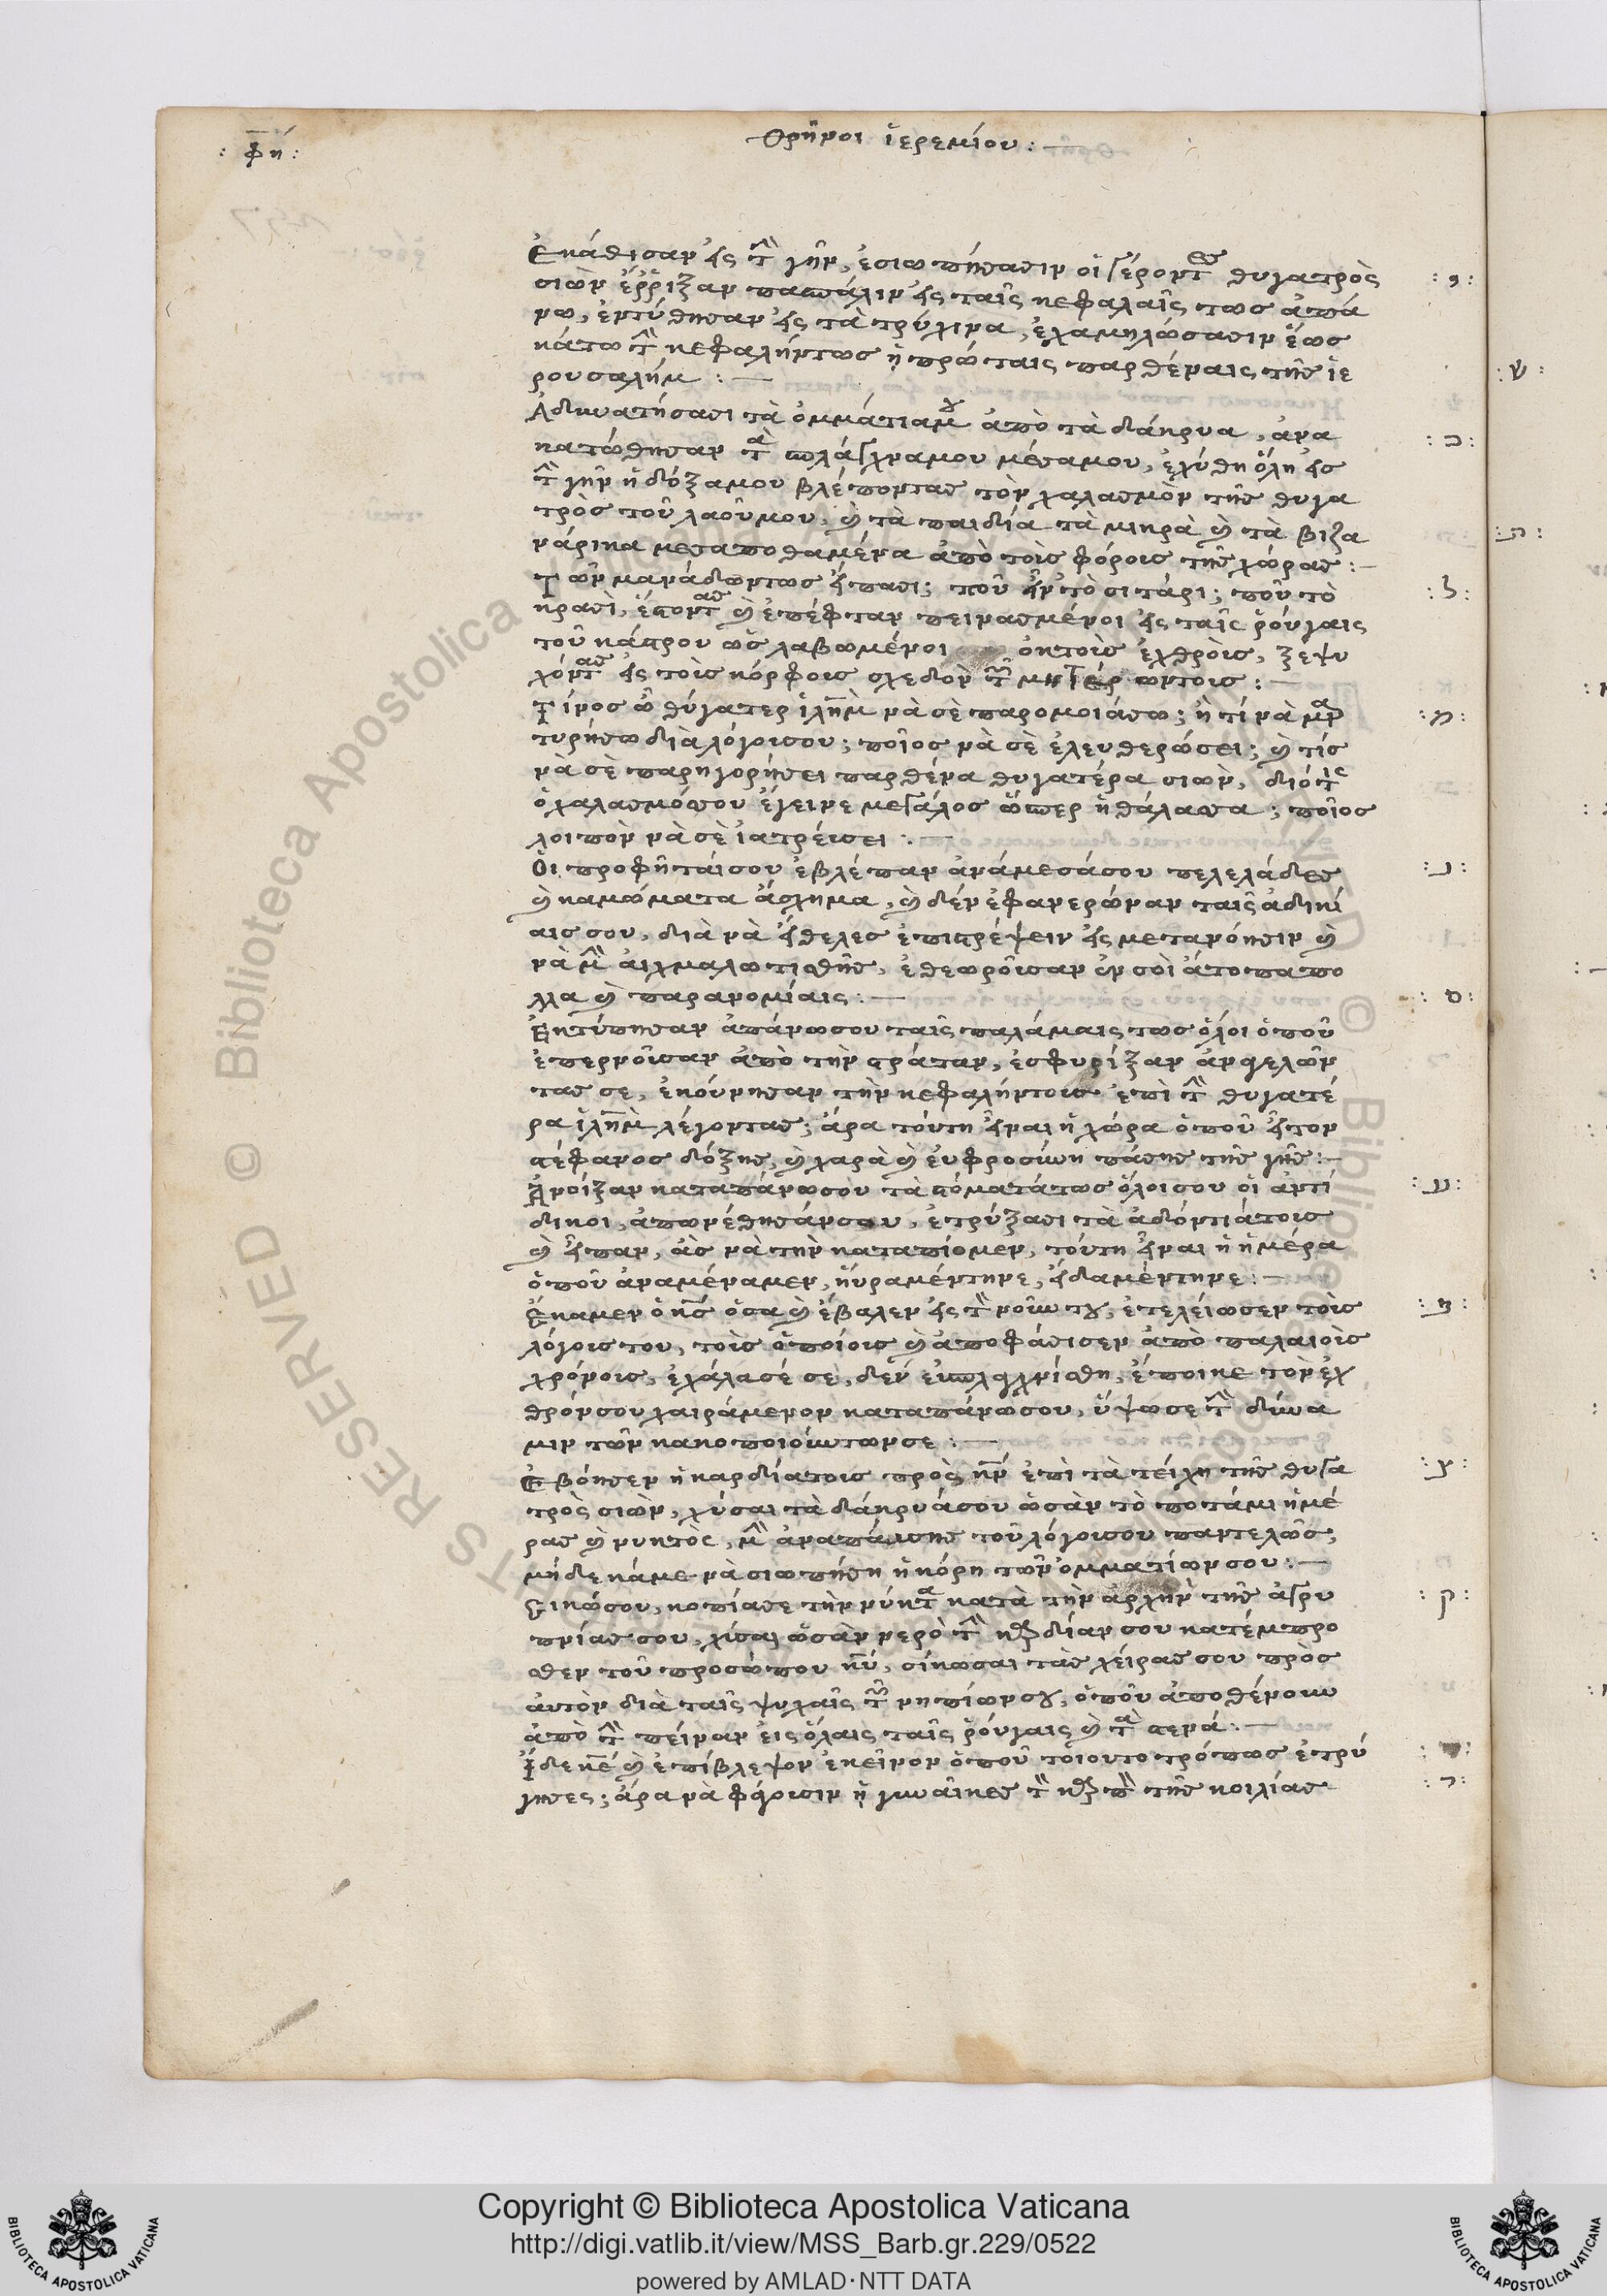 : φη :
Θρῆνοι ἱερεμίου : —
Ἐκάθισαν εἰς τὴν γῆν, ἐσιωπήσασιν οἱ γέροντες θυγατρὸς
σιὼν ἔρριξαν πασπάλιν εἰς ταῖς κεφαλαῖς τως ἀπά
νω, ἐντύθησαν εἰς τὰ τρύχινα, ἐχαμηλώσασιν ἕως
κάτω τὴν κεφαλήντως ᾑ πρώταις παρθέναις τῆς ἱε
ρουσαλήμ : —
Ἀδυνατήσασι τὰ ὀμμάτιαμου ἀπὸ τὰ δάκρυα, ἀνα
κατώθησαν τὰ σπλάγχναμου μέσαμου, ἐχύθη ὅλη εἰς
τὴν γῆν ἡ δόξαμου βλέποντας τὸν χαλασμὸν τῆς θυγα
τρὸς τοῦ λαοῦμου, καὶ τὰ παιδία τὰ μικρὰ καὶ τὰ βιζα
νάρικα μεσαποθαμένα ἀπὸ τοὶς φόροις τῆς χώρας : —
Τῶν μανάδωντως εἴπασι; ποῦ εἶν τὸ σιτάρι; ποῦ τὸ
κρασὶ, ἔστοντας καὶ ἐπέφταν πεινασμένοι εἰς ταῖς ῥούγαις
τοῦ κάστρου ὡς λαβωμένοι ὀκτοὶς ἐχθροὶς, ξεψυ
χόντας εἰς τοὶς κόρφοις σχεδὸν τῶν μητέρωντοις : —
Τίνος ὦ θύγατερ ἱλὴμ νὰ σὲ παρομοιάσω; ἢ τί νὰ μαρ
τυρήσω διὰ λόγοισου; ποῖος νὰ σὲ ἐλευθερώσει; καὶ τίς
να σὲ παρηγορήσει παρθένα θυγατέρα σιὼν, διότις
ὁχαλασμόςσου ἔγεινε μεγάλος ὥσπερ ἡ θάλασσα; ποῖος
λοιπὸν νὰ σὲ ἰατρέυσει : —
Ὁι προφῆτάισου ἐβλέπαν ἀνάμεσάσου πελελάδες
καὶ καμώματα ἄσχημα, καὶ δὲν ἐφανερώναν ταῖς ἀδικί
αις σου, διὰ νὰ εἴθελες ἐπιστρέψειν εἰς μετανόησιν καὶ
νὰ μὴν ἀιχμαλωτισθῆς, ἐθεωροῦσαν ἐν σοὶ ἄτοπα πο
λλα καὶ παρανομίαις : —
Ἐκτύπησαν ἀπάνωσου ταῖς παλάμαις τως ὅλοι ὁποῦ
ἐπερνοῦσαν ἀπὸ τὴν στράταν, ἐσφυρίξαν ἀναγελῶν
τας σε, ἐκούνησαν τὴν κεφαλήντοις ἐπὶ τὴν θυγατέ
ρα ἱλὴμ λέγοντας; ἄρα τούτη εἶναι ἡ χώρα ὁποῦ εἶτον
στέφανος δόξης, καὶ χαρὰ καὶ ἐυφροσύνη πάσης τῆς γῆς : —
Ἀνοίξαν καταπάνωσου τὰ στόματάτως ὅλοισου οἱ ἀντί
δικοι, ἀπωνέθησάνσου, ἐτρύξασι τὰ ἀδόντιάτοις
καὶ εἶπαν, ἂς νὰ τὴν καταπίομεν, τούτη εἶναι ἡ ἡμέρα
ὁποῦ ἀναμέναμεν, ηὕραμέντηνε, εἴδαμέντηνε : —
Ἔκαμεν ὁ κύριος ὅσα καὶ ἔβαλεν εἰς τὸν νοῦν του, ἐτελείωσεν τοὶς
λόγοις του, τοὶς ὁποίοις καὶ ἀποφάσισεν ἀπὸ παλαιοὶς
χρόνοις, ἐχάλασέ σὲ, δὲν ἐυσπλαχνίσθη, ἔποικε τὸν ἐχ
θρόνσου χαιράμενον καταπάνωσου, ὕψωσε τὴν δύνα
μιν τῶν κακοποιούντωνσε : —
Ἐβόησεν ἡ καρδίατοις πρὸς κύριον ἐπὶ τὰ τείχη τῆς θυγα
τρὸς σιὼν, χύσαι τὰ δάκρυάσου ὡσὰν τὸ ποτάμι ἡμέ
ρας καὶ νυκτὸς, μὴν ἀναπάυσης τοῦ λόγουσου παντελῶς,
μήδε κάμε νὰ σιωπήση ἡ κόρη τῶν ὀμματίων σου : —
Σικώσου, κοπίασε τὴν νύκτα κατὰ τὴν ἀρχὴν τῆς ἀγρυ
πνίας σου, χύσαι ὡσὰν νερὸ τὴν καρδίαν σου κατέμπρο
σθεν τοῦ προσώπου κυρίου, σίκωσαι τὰς χείρας σου πρὸς
ἀυτὸν διὰ ταῖς ψυχαῖς τῶν νηπίωνσου, ὁποῦ ἀποθένουν
ἀπὸ τὴν πείναν εἰς ὅλαις ταῖς ῥούγαις καὶ τὰ στενά : —
Ἴδε κύριε καὶ ἐπίβλεψον ἐκεῖνον ὁποῦ τοιουτοτρόπως ἐτρύ
γησες; ἄρα νὰ φάγουσιν ᾑ γυναῖκες τὸν καρπὸν τῆς κοιλίας
: ו :
: כ :
: ל :
: מ :
: נ :
: ס :
: ע :
: צ :
: ק :
: ר :
: ש :
: ת :
© Biblioteca Apostolica
Copyright © Biblioteca Apostolica Vaticana
http://digi.vatlib.it/view/MSS_Barb.gr.229/0522
powered by AMLAD·NTT DATA
BIBLIOTECA APOSTOLICA VATICANA
BIBLIOTECA APOSTOLICA VATICANA